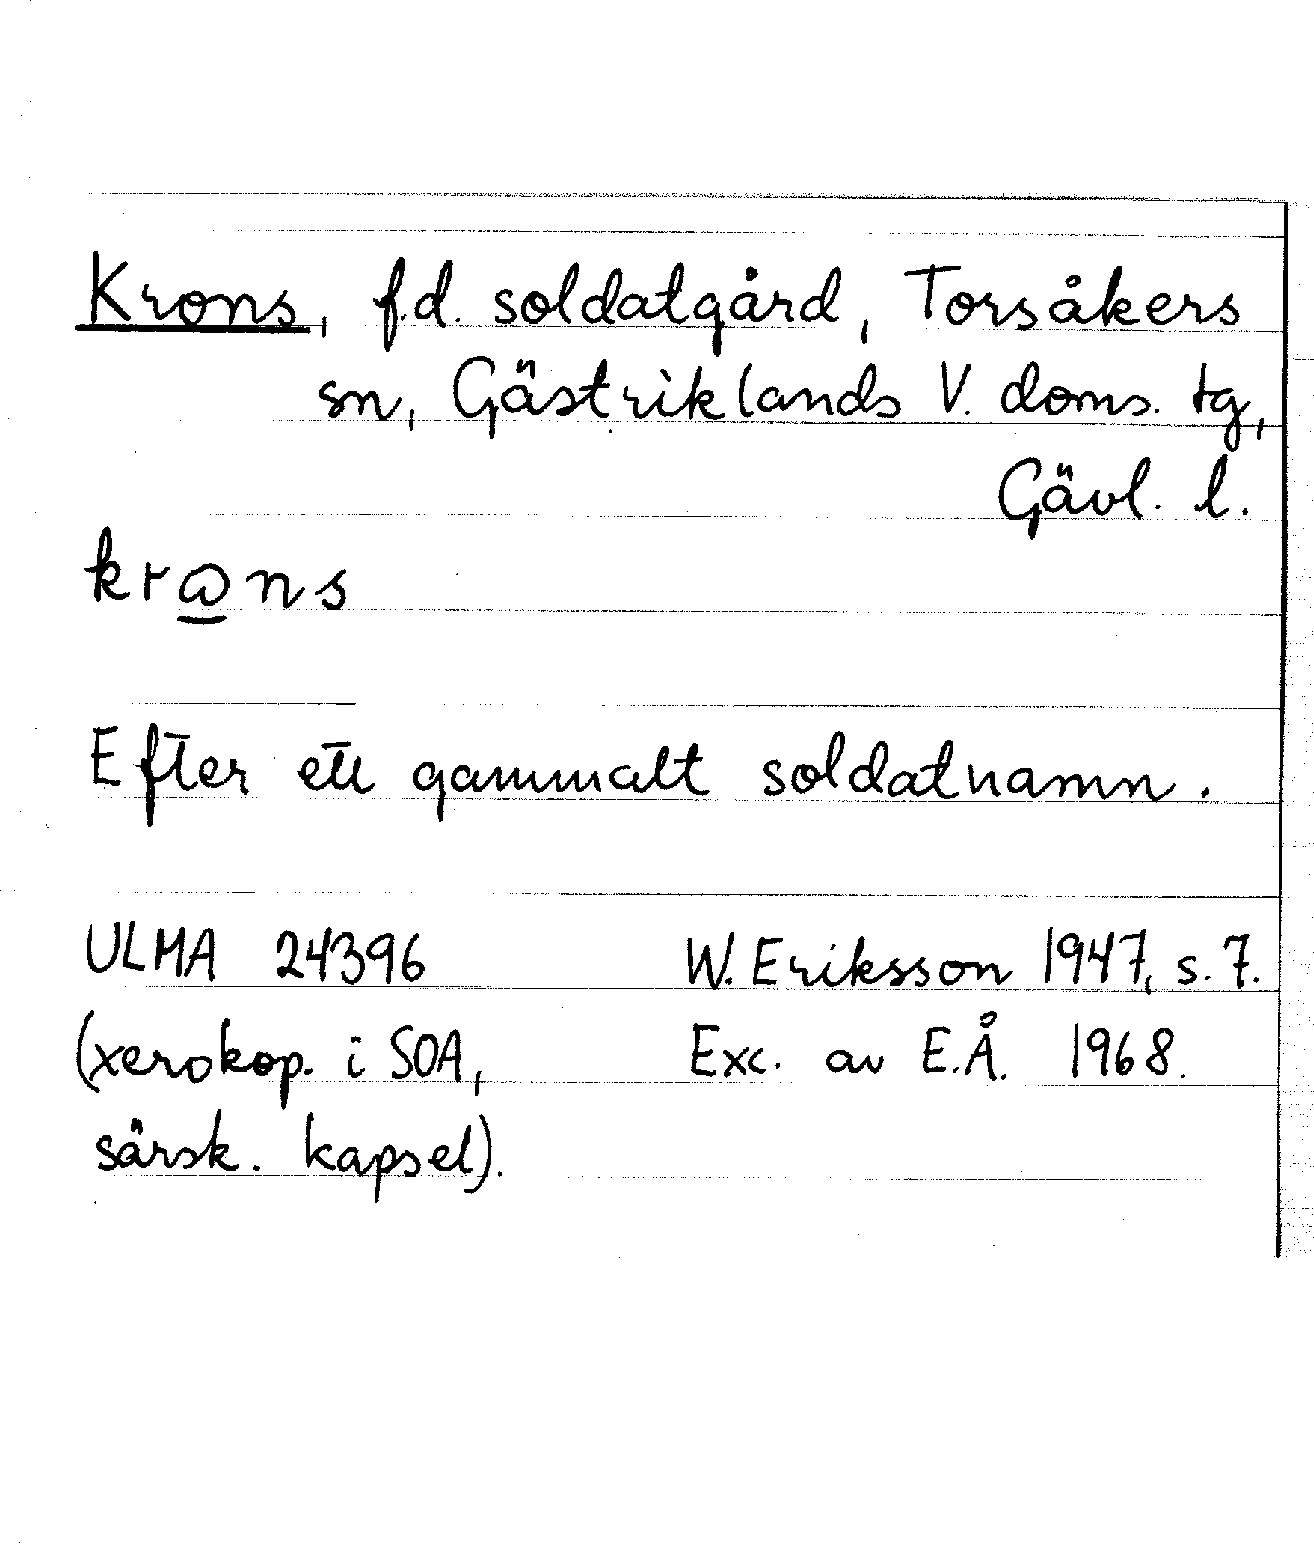 Krons, f.d. soldatgård, Torsåkers
sn, Gästriklands V. doms. tg,
Gävl. l.
krω̲ns
Efter ett gammalt soldatnamn.
ULMA 24396 W. Eriksson 1947, s. 7.
(xerokop. i SOA, Exc. av E.Å. 1968.
särsk. kapsel).